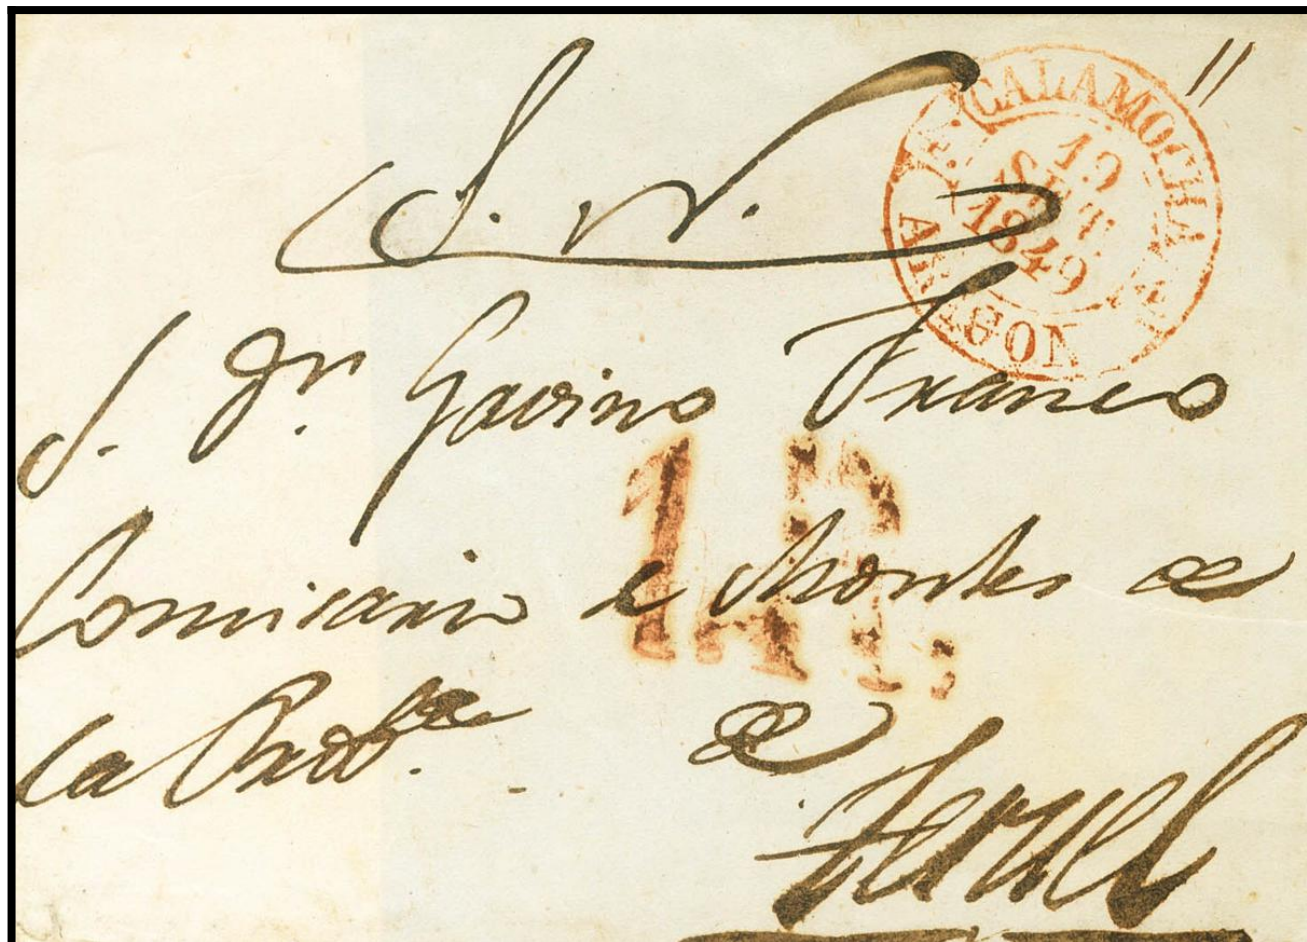 S. N.
CALAMOCHA
19
SET
1849
ARAGON
S. Dn. Gavino Franco
1R.
Comisario de Montes de
la Prov.ª de
Teruel